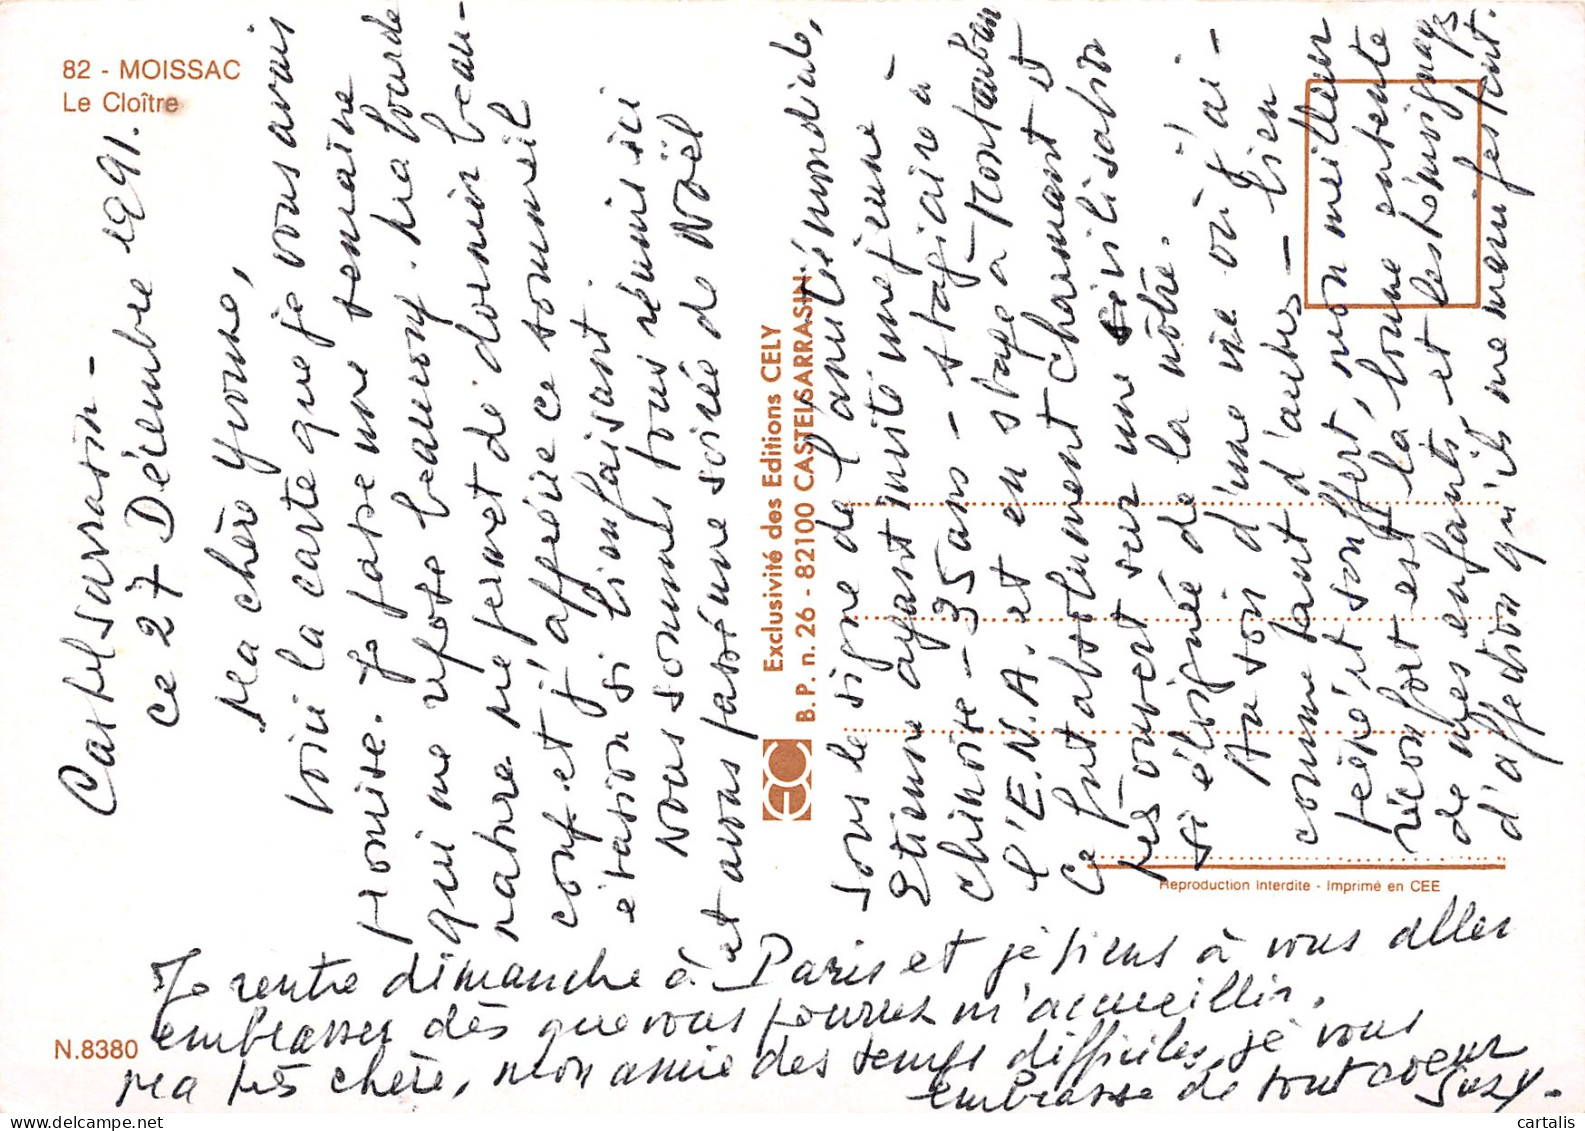 82 - MOISSAC
Le Cloître
Castelsarrasin -
ce 27 Décembre 1991.
Ma chère Yvonne,
voici la carte que je vous avais
promise. Je passe une semaine
qui me repose beaucoup. Ma lourde
nature me permet de dormir beau-
conf et j'apprécie ce sommeil
étation si bienfaisant.
Nous sommes tous réunis ici
et avons passé une soirée de Noël
sous le signe de l'amitié mondiale,
Etienne ayant invité une jeune
chinoise - 35 ans - stagiaire à
l'E.N.A. et en stage à Montauban
Ce fut absolument charmant et
très ouvert sur une civilisation
si éloignée de la nôtre.
Au soir d'une vie où j'ai -
comme tant d'autres - bien
peiné et souffert, mon meilleur
réconfort est la bonne entente
de mes enfants et les témoignages
d'affection qu'ils me manifestent.
Je rentre dimanche à Paris et je tiens à vous aller
embrasser dès que vous pourrez m'accueillir.
Ma très chère, mon amie des temps difficiles, je vous
embrasse de tout coeur
Suzy.
Exclusivité des Editions CELY
B.P. n. 26 - 82100 CASTELSARRASIN
Reproduction Interdite - Imprimé en CEE
N.8380
cartalis